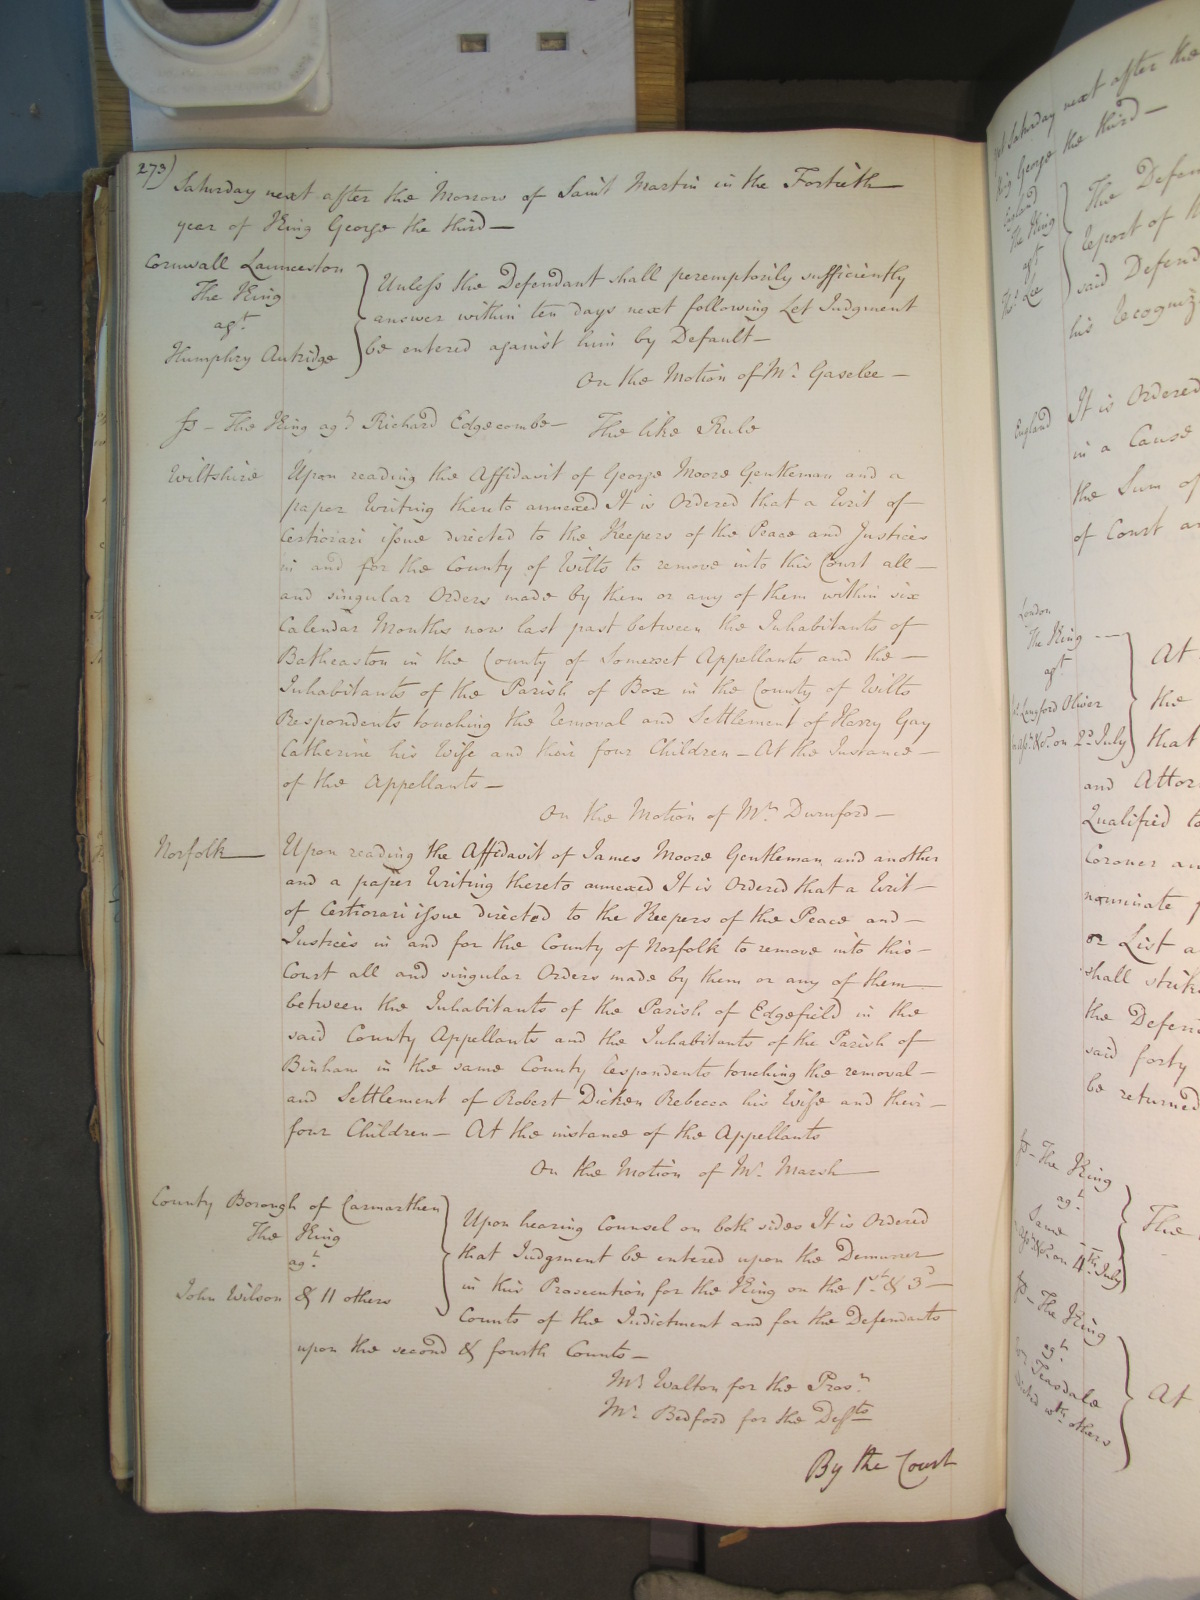 273)
Saturday next after the Morrow of Saint Martin in the Fortieth
year of King George the third —
Cornwall Launceston
The King
agt.
Humphry Autridge
Unless the Defendant shall peremptorily sufficiently
answer within ten days next following Let Judgment
be entered against him by Default —
On the Motion of Mr. Gaselee —
Ss – The King agt. Richard Edgecombe – The like Rule
Wiltshire
Upon reading the Affidavit of George Moore Gentleman and a
paper Writing thereto annexed It is Ordered that a Writ of
Certiorari issue directed to the Keepers of the Peace and Justices
in and for the County of Wilts to remove into this Court all —
and singular Orders made by them or any of them within six
Calendar Months now last past between the Inhabitants of
Batheaston in the County of Somerset Appellants and the —
Inhabitants of the Parish of Box in the County of Wilts
Respondents touching the removal and Settlement of Harry Gay
Catherine his Wife and their four Children – At the Instance —
of the Appellants —
On the Motion of Mr. Durnford —
Norfolk
Upon reading the Affidavit of James Moore Gentleman and another
and a paper Writing thereto annexed It is Ordered that a Writ —
of Certiorari issue directed to the Keepers of the Peace and —
Justices in and for the County of Norfolk to remove into this —
Court all and singular Orders made by them or any of them —
between the Inhabitants of the Parish of Edgefield in the
said County Appellants and the Inhabitants of the Parish of
Binham in the same County Respondents touching the removal —
and Settlement of Robert Dicken Rebecca his Wife and their —
four Children — At the instance of the Appellants
On the Motion of Mr. Marsh —
County Borough of Carmarthen
The King
agt.
John Wilson & 11 others
Upon hearing Counsel on both sides It is Ordered
that Judgment be entered upon the Demurrer
in this Prosecution for the King on the 1st. & 3d. —
Counts of the Indictment and for the Defendants
upon the second & fourth Counts —
Mr. Walton for the Prosr.
Mr. Bedford for the Defts
By the Court
Saturday next after the
King George the third —
England
The King
agt.
Thos. Lee
The Defen
report of
said Defend
his recogniz
England
It is Ordered
in a Cause
the Sum of
of Court an
London
The King
agt.
Langford Oliver
on 2d. July
At
the
that
and Attor
Qualified to
Coroner an
nominate
or List a
shall strik
the Defen
said forty
be returned
Ss – The King
agt.
Same
on 4th July
The
Ss – The King
agt.
Teasdale
wth. others
At